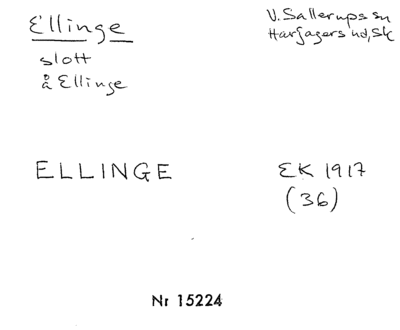 Ellinge
V. Sallerups sn
Harjagers hd, Sk
slott
å Ellinge
ELLINGE
EK 1917
(36)
Nr 15224